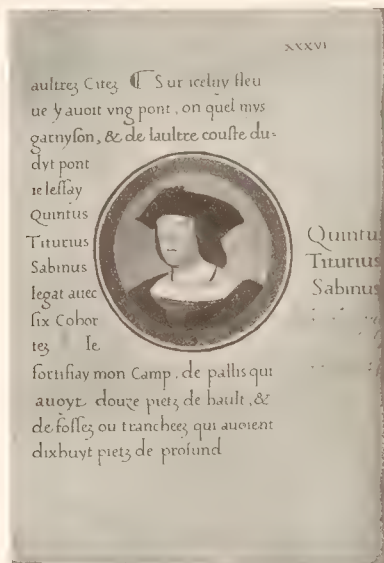 XXXVI
aultrez Citez ¶ Sur iceluy fleu
ue y auoit vng pont, on quel mys
garnyson, & de laultre couste du-
dyt pont
ie lessay
Quintus
Titurius
Sabinus
legat auec
six Cohor
tez Ie
fortifiay mon Camp. de pallis qui
auoyt douze pietz de hault, &
de fossez ou trancheez qui auoient
dixhuyt pietz de profund
Quintus
Titurius
Sabinus